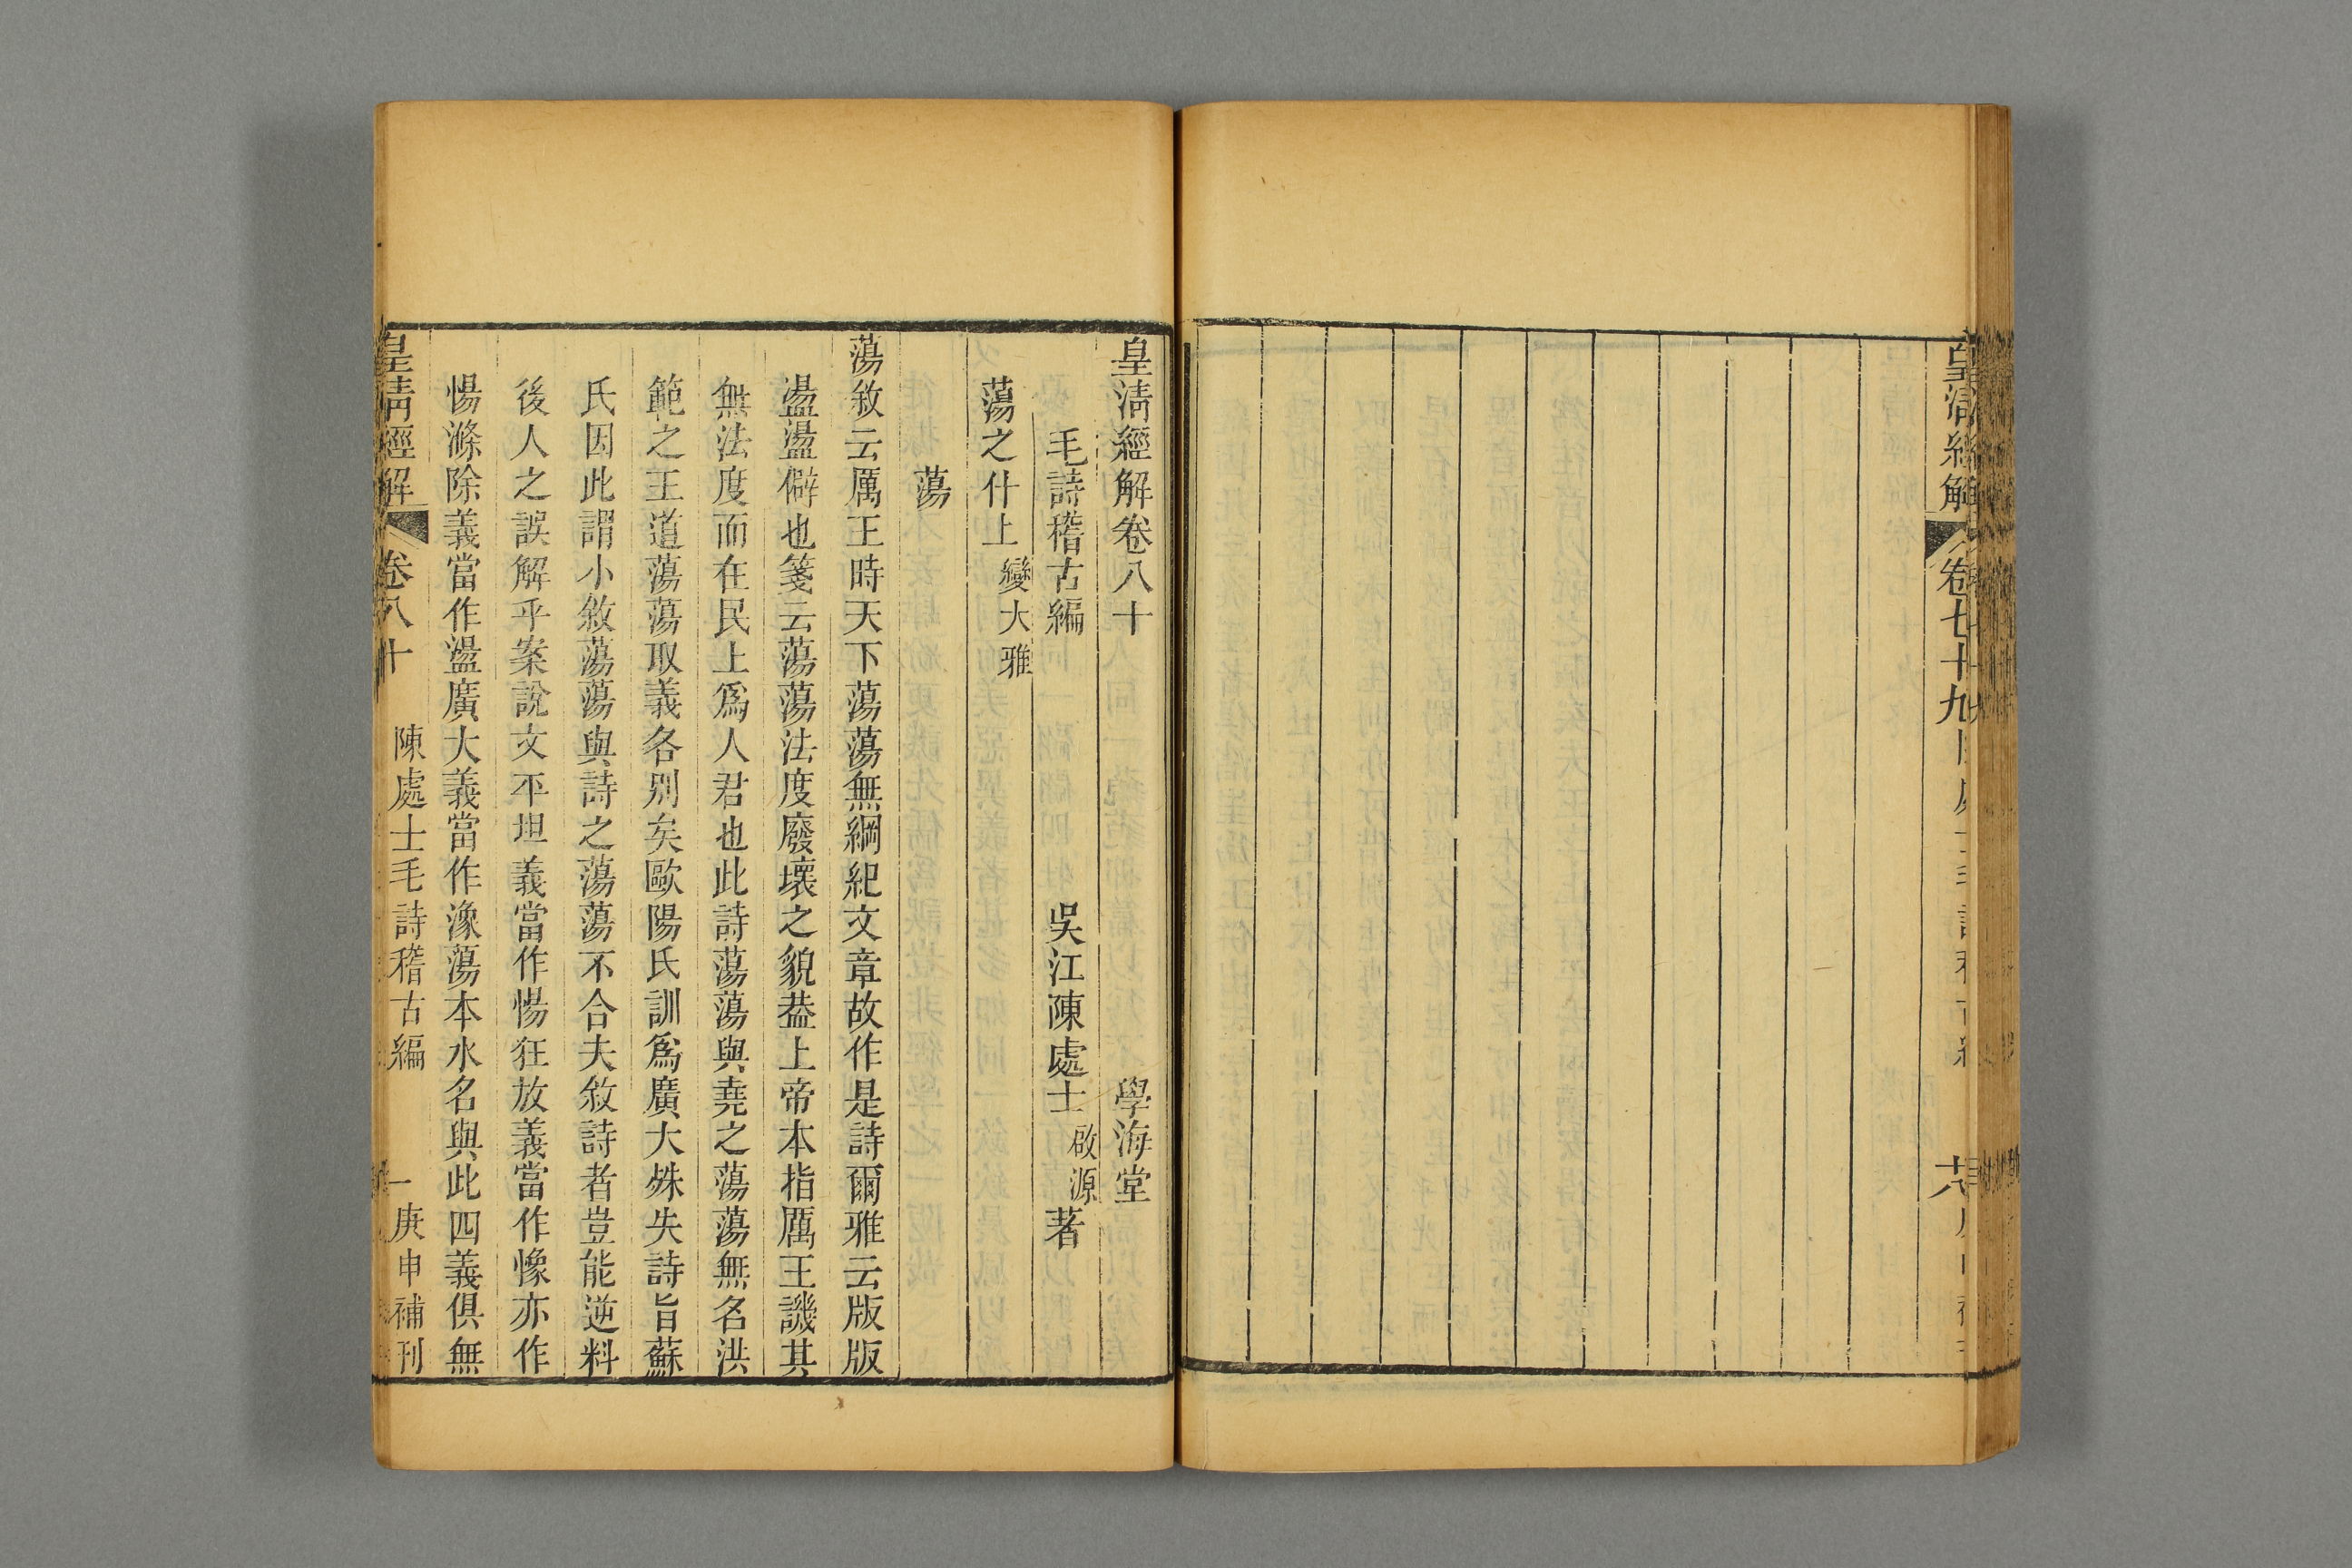 皇清經解
卷七十九
六
皇清經解卷八十
學海堂
毛詩稽古編
吳江陳處士啟源著
蕩之什上變大雅
蕩
蕩敘云厲王時天下蕩蕩無綱紀文章故作是詩爾雅云版版
盪盪僻也箋云蕩蕩法度廢壞之貌葢上帝本指厲王譏其
無法度而在民上爲人君也此詩蕩蕩與堯之蕩蕩無名洪
範之王道蕩蕩取義各別矣歐陽氏訓爲廣大殊失詩旨蘇
氏因此謂小敘蕩蕩與詩之蕩蕩不合夫敘詩者豈能逆料
後人之誤解乎案說文平坦義當作愓狂放義當作憿亦作
愓滌除義當作盪廣大義當作潒蕩本水名與此四義俱無
皇清經解
卷八十
陳處士毛詩稽古編
一
庚申補刊